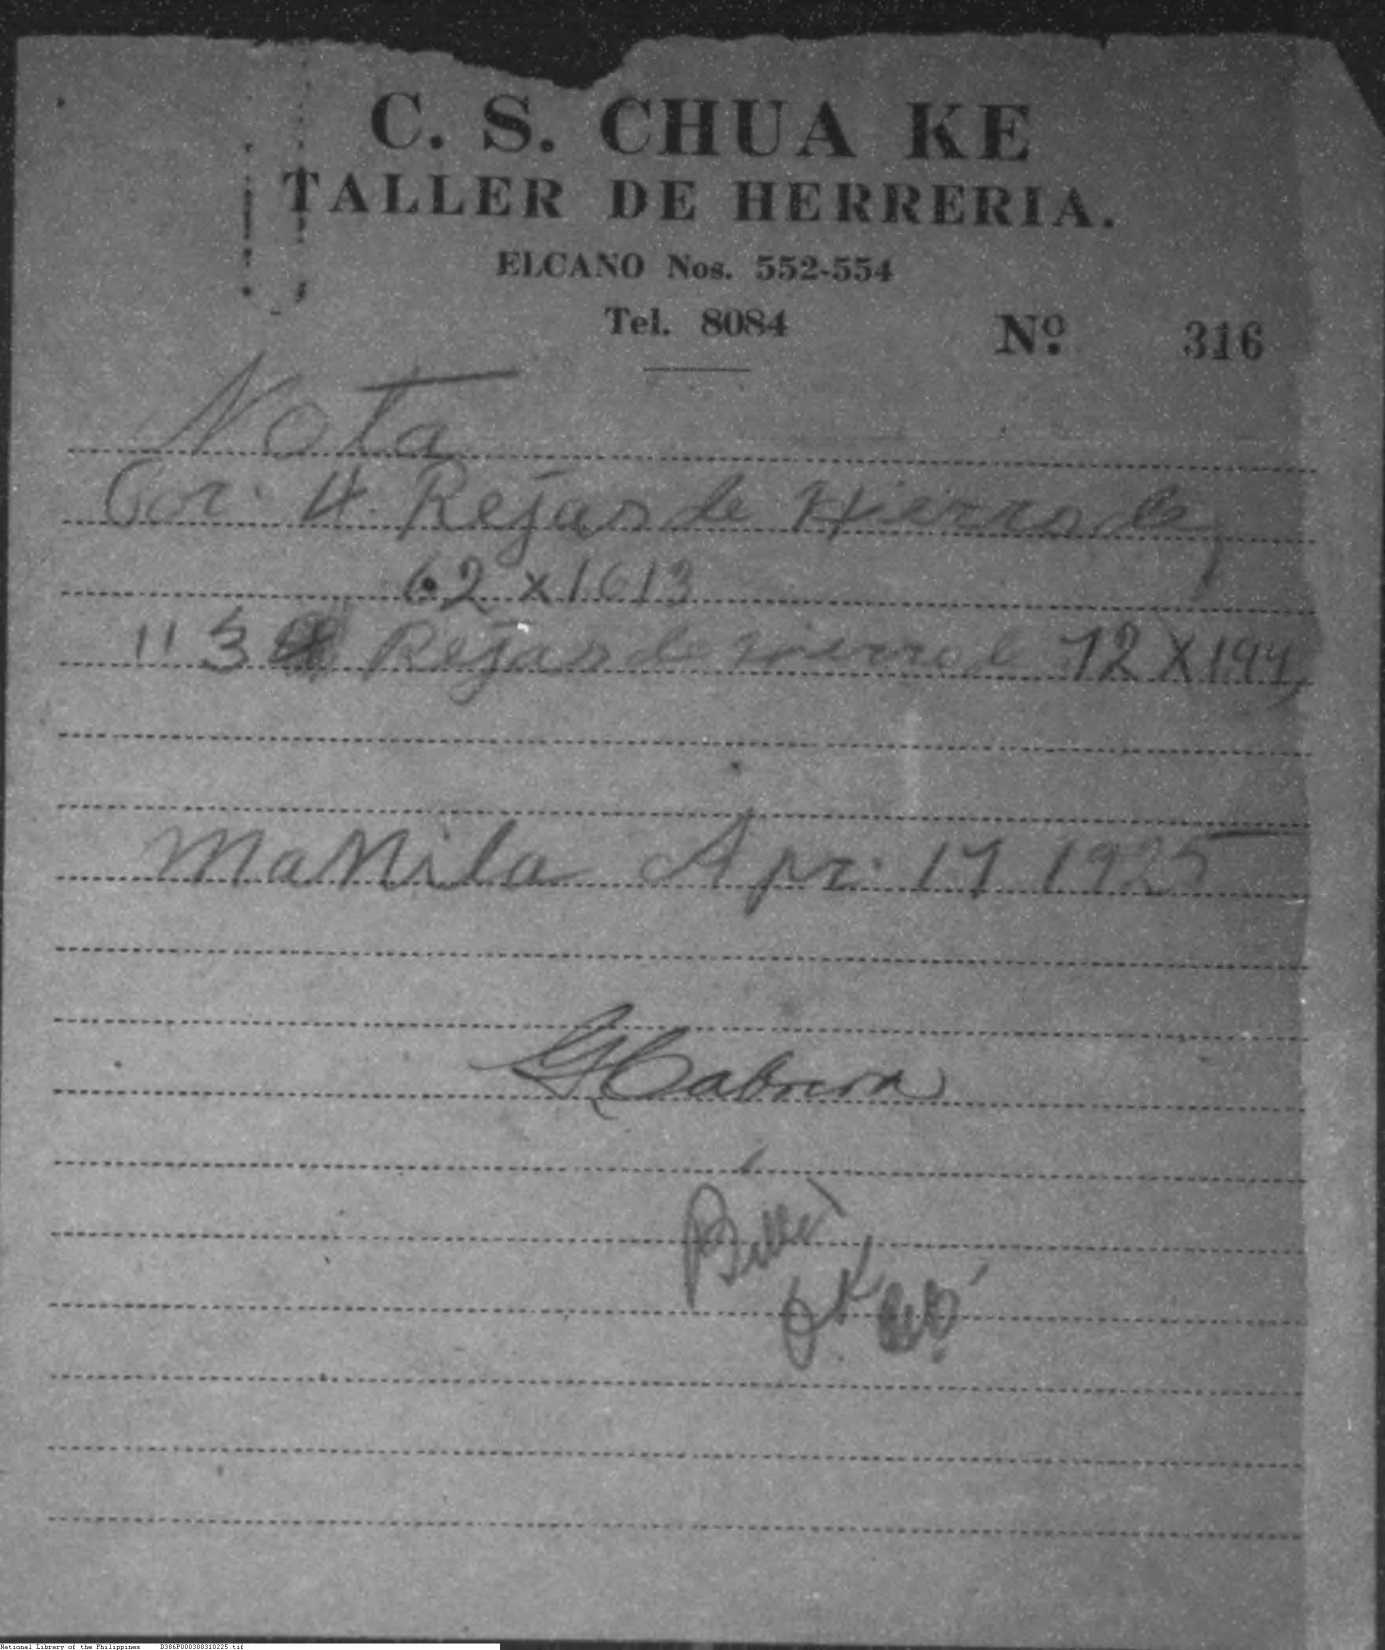 C. S. CHUA KE
TALLER DE HERRERIA.
ELCANO Nos. 552-554
Tel. 8084
Nº. 316
Nota
Por 4 Rejas de Hierro de
62 x 1613
" 3 Rejas de Hierro de 72 X 194
Manila Apr. 17 1925
G Cabrera
Billed
OK
National Library of the Philippines D386P000308310225.tif